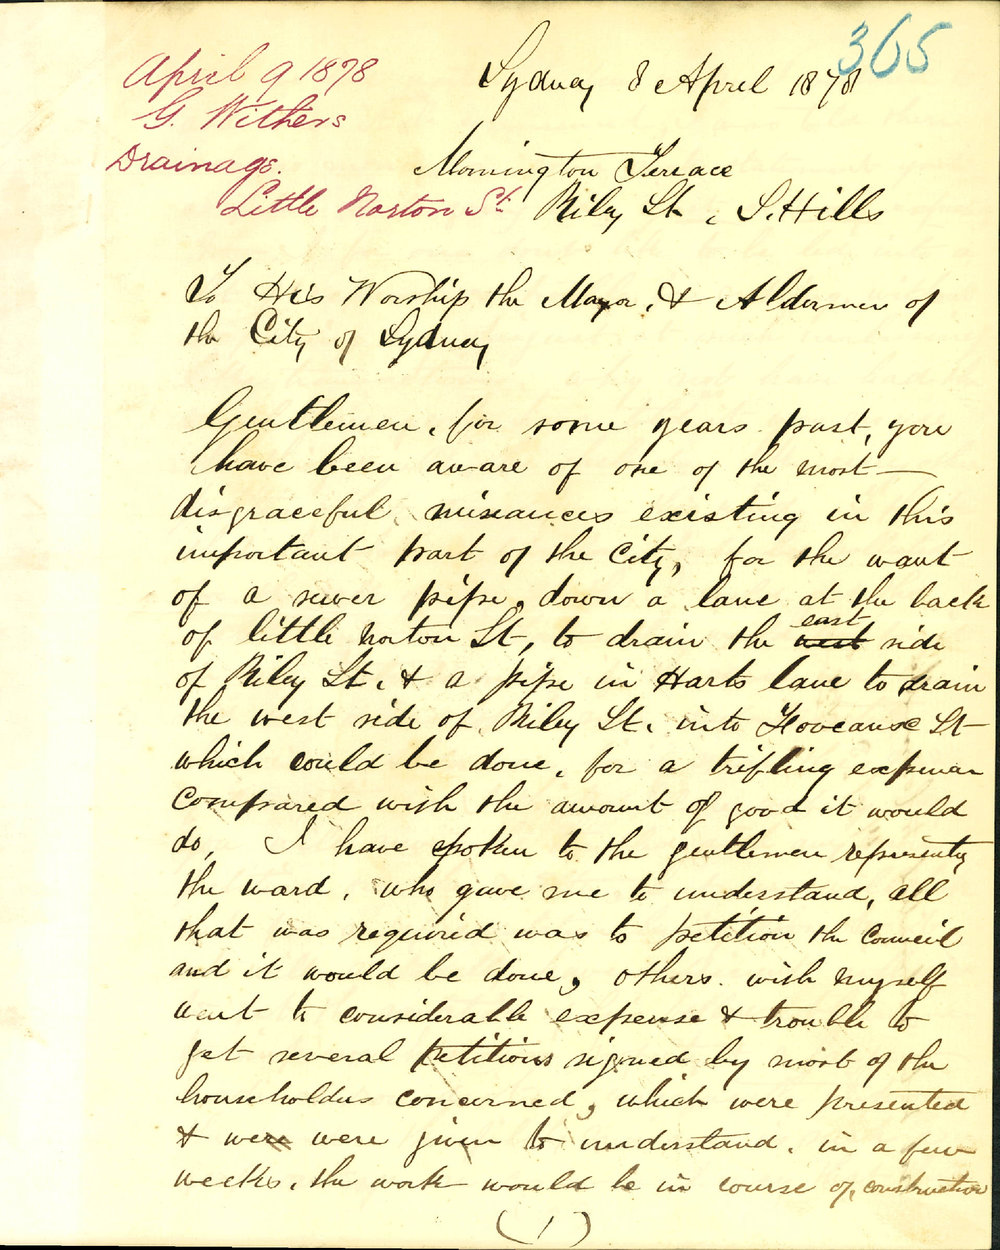 365
April 9 1878
G. Withers
Drainage.
Little Norton St.
Sydney 8 April 1878
Mornington Terrace
Riley St, S. Hills
To His Worship the Mayor, & Aldermen of
the City of Sydney
Gentlemen, for some years past, you
have been aware of one of the most
disgraceful nuisances existing in this
important part of the City, for the want
of a sewer pipe, down a lane at the back
of little Norton St, to drain the west east side
of Riley St, & a pipe in Harts lane to drain
the west side of Riley St. into Foveaux St
which could be done, for a trifling expense
compared with the amount of good it would
do, I have spoken to the gentlemen representing
the ward, who gave me to understand, all
that was required was to petition the Council
and it would be done, others with myself
went to considerable expense & trouble to
get several petitions signed by most of the
householders concerned, which were presented
& were were given to understand, in a few
weeks, the work would be in course of construction
(1)